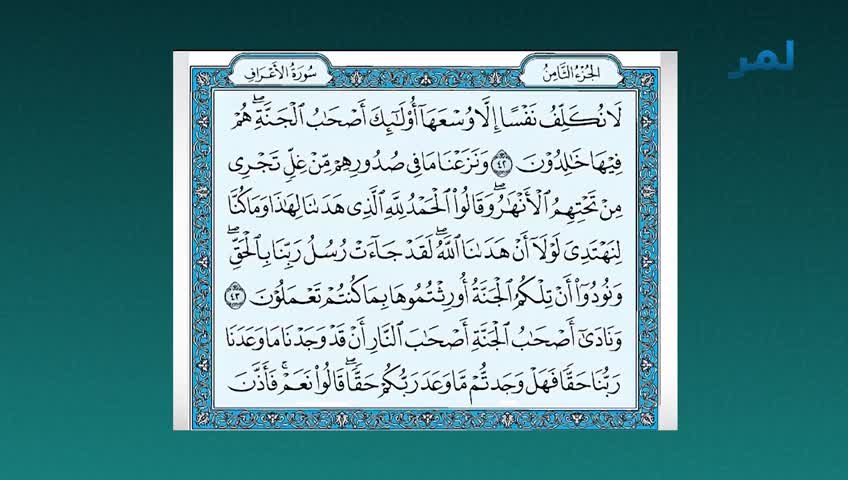 لمر
الجُزْءُ الثَّامِنُ
سُورَةُ الأَعْرَافِ
لَا نُكَلِّفُ نَفْسًا إِلَّا وُسْعَهَآ أُوْلَـٰٓئِكَ أَصْحَـٰبُ الْجَنَّةِ ۖ هُمْ
فِيهَا خَـٰلِدُونَ ٤٢ وَنَزَعْنَا مَا فِى صُدُورِهِم مِّنْ غِلٍّ تَجْرِى
مِن تَحْتِهِمُ الْأَنْهَـٰرُ ۖ وَقَالُوا۟ الْحَمْدُ لِلَّهِ الَّذِى هَدَىٰنَا لِهَـٰذَا وَمَا كُنَّا
لِنَهْتَدِىَ لَوْلَآ أَنْ هَدَىٰنَا اللَّهُ ۖ لَقَدْ جَآءَتْ رُسُلُ رَبِّنَا بِالْحَقِّ ۖ
وَنُودُوٓا۟ أَن تِلْكُمُ الْجَنَّةُ أُورِثْتُمُوهَا بِمَا كُنتُمْ تَعْمَلُونَ ٤٣
وَنَادَىٰٓ أَصْحَـٰبُ الْجَنَّةِ أَصْحَـٰبَ النَّارِ أَن قَدْ وَجَدْنَا مَا وَعَدَنَا
رَبُّنَا حَقًّا فَهَلْ وَجَدتُّم مَّا وَعَدَ رَبُّكُمْ حَقًّا ۖ قَالُوا۟ نَعَمْ ۚ فَأَذَّنَ